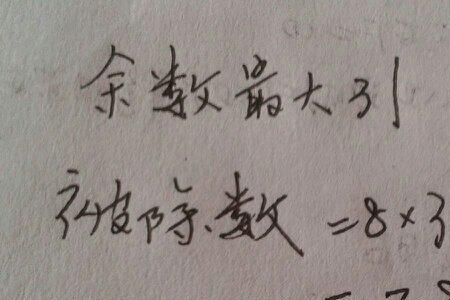 余数最大
被除数 =8×3